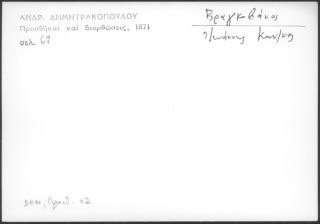 ΑΝΔΡ. ΔΗΜΗΤΡΑΚΟΠΟΥΛΟΥ
Προσθῆκαι καὶ διορθώσεις, 1871
σελ. 62
Βραγκβάνος
Ἰωάννης
ΔΗΜ, Προσθ. 62